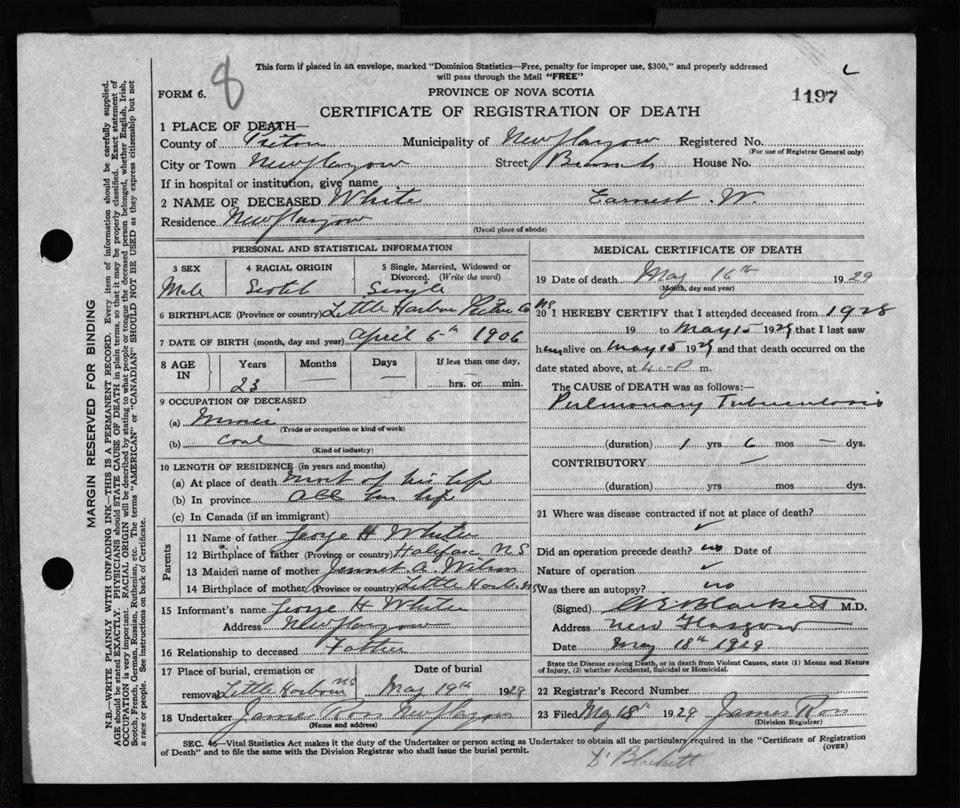 8
This form if placed in an envelope, marked "Dominion Statistics—Free, penalty for improper use, $300," and properly addressed
will pass through the Mail "FREE"
FORM 6.
PROVINCE OF NOVA SCOTIA
1197
CERTIFICATE OF REGISTRATION OF DEATH
1 PLACE OF DEATH—
County of Pictou Municipality of New Glasgow Registered No.
(For use of Registrar General only)
City or Town New Glasgow Street House No.
If in hospital or institution, give name
2 NAME OF DECEASED White Earnest W.
Residence New Glasgow
(Usual place of abode)
PERSONAL AND STATISTICAL INFORMATION
3 SEX
Male
4 RACIAL ORIGIN
Scotch
5 Single, Married, Widowed or
Divorced. (Write the word)
Single
6 BIRTHPLACE (Province or country) Little Harbour Pictou Co NS
7 DATE OF BIRTH (month, day and year) April 5th 1906
8 AGE
IN
Years
23
Months
—
Days
—
If less than one day,
hrs. or min.
9 OCCUPATION OF DECEASED
(a) Miner
(Trade or occupation or kind of work)
(b) Coal
(Kind of industry)
10 LENGTH OF RESIDENCE (in years and months)
(a) At place of death most of his life
(b) In province all his life
(c) In Canada (if an immigrant)
Parents
11 Name of father George H White
12 Birthplace of father (Province or country) Halifax N S
13 Maiden name of mother Jennet A. Wilson
14 Birthplace of mother (Province or country) Little Harbour NS
15 Informant's name George H White
Address New Glasgow
16 Relationship to deceased Father
17 Place of burial, cremation or
removal Little Harbour NS
Date of burial
May 19th 1929
18 Undertaker James Ross New Glasgow
(Name and address)
MEDICAL CERTIFICATE OF DEATH
19 Date of death May 16th 1929
(Month, day and year)
20 I HEREBY CERTIFY that I attended deceased from 1928
19 to May 15 1929 that I last saw
him alive on May 15 1929 and that death occurred on the
date stated above, at m.
The CAUSE OF DEATH was as follows:—
Pulmonary Tuberculosis
(duration) 1 yrs 6 mos — dys.
CONTRIBUTORY —
(duration) yrs mos dys.
21 Where was disease contracted if not at place of death?
Did an operation precede death? no Date of
Nature of operation
Was there an autopsy? no
(Signed) Blackett M.D.
Address New Glasgow
Date May 18th 1929
State the Disease causing Death, or in death from Violent Causes, state (1) Means and Nature
of Injury, (2) whether Accidental, Suicidal or Homicidal.
22 Registrar's Record Number
23 Filed May 18th 1929 James Ross
(Division Registrar)
SEC. 46—Vital Statistics Act makes it the duty of the Undertaker or person acting as Undertaker to obtain all the particulars required in the "Certificate of Registration
of Death" and to file the same with the Division Registrar who shall issue the burial permit.
(OVER)
Dr Blackett
MARGIN RESERVED FOR BINDING
N.B.—WRITE PLAINLY WITH UNFADING INK—THIS IS A PERMANENT RECORD. Every item of information should be carefully supplied.
AGE should be stated EXACTLY. PHYSICIANS should STATE CAUSE OF DEATH in plain terms, so that it may be properly classified. Exact statement of
OCCUPATION is very important. RACIAL ORIGIN will be described by stating to what people or tongue the deceased person belonged, whether English, Irish,
Scotch, French, German, Russian, Ruthenian, etc. The terms "AMERICAN" or "CANADIAN" SHOULD NOT BE USED as they express citizenship but not
a race or people. See instructions on back of Certificate.